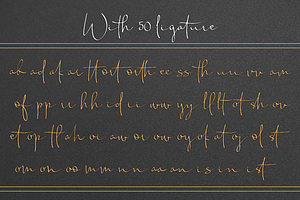 With 50 ligature
ab ad af ar tt ort orth ee ss th un vv am
of pp rr hh id ii ww yy lll tt ot sh ov
et op tt ah or aw or ow oy of at oj ol st
om on oo mm nn an an is in ist